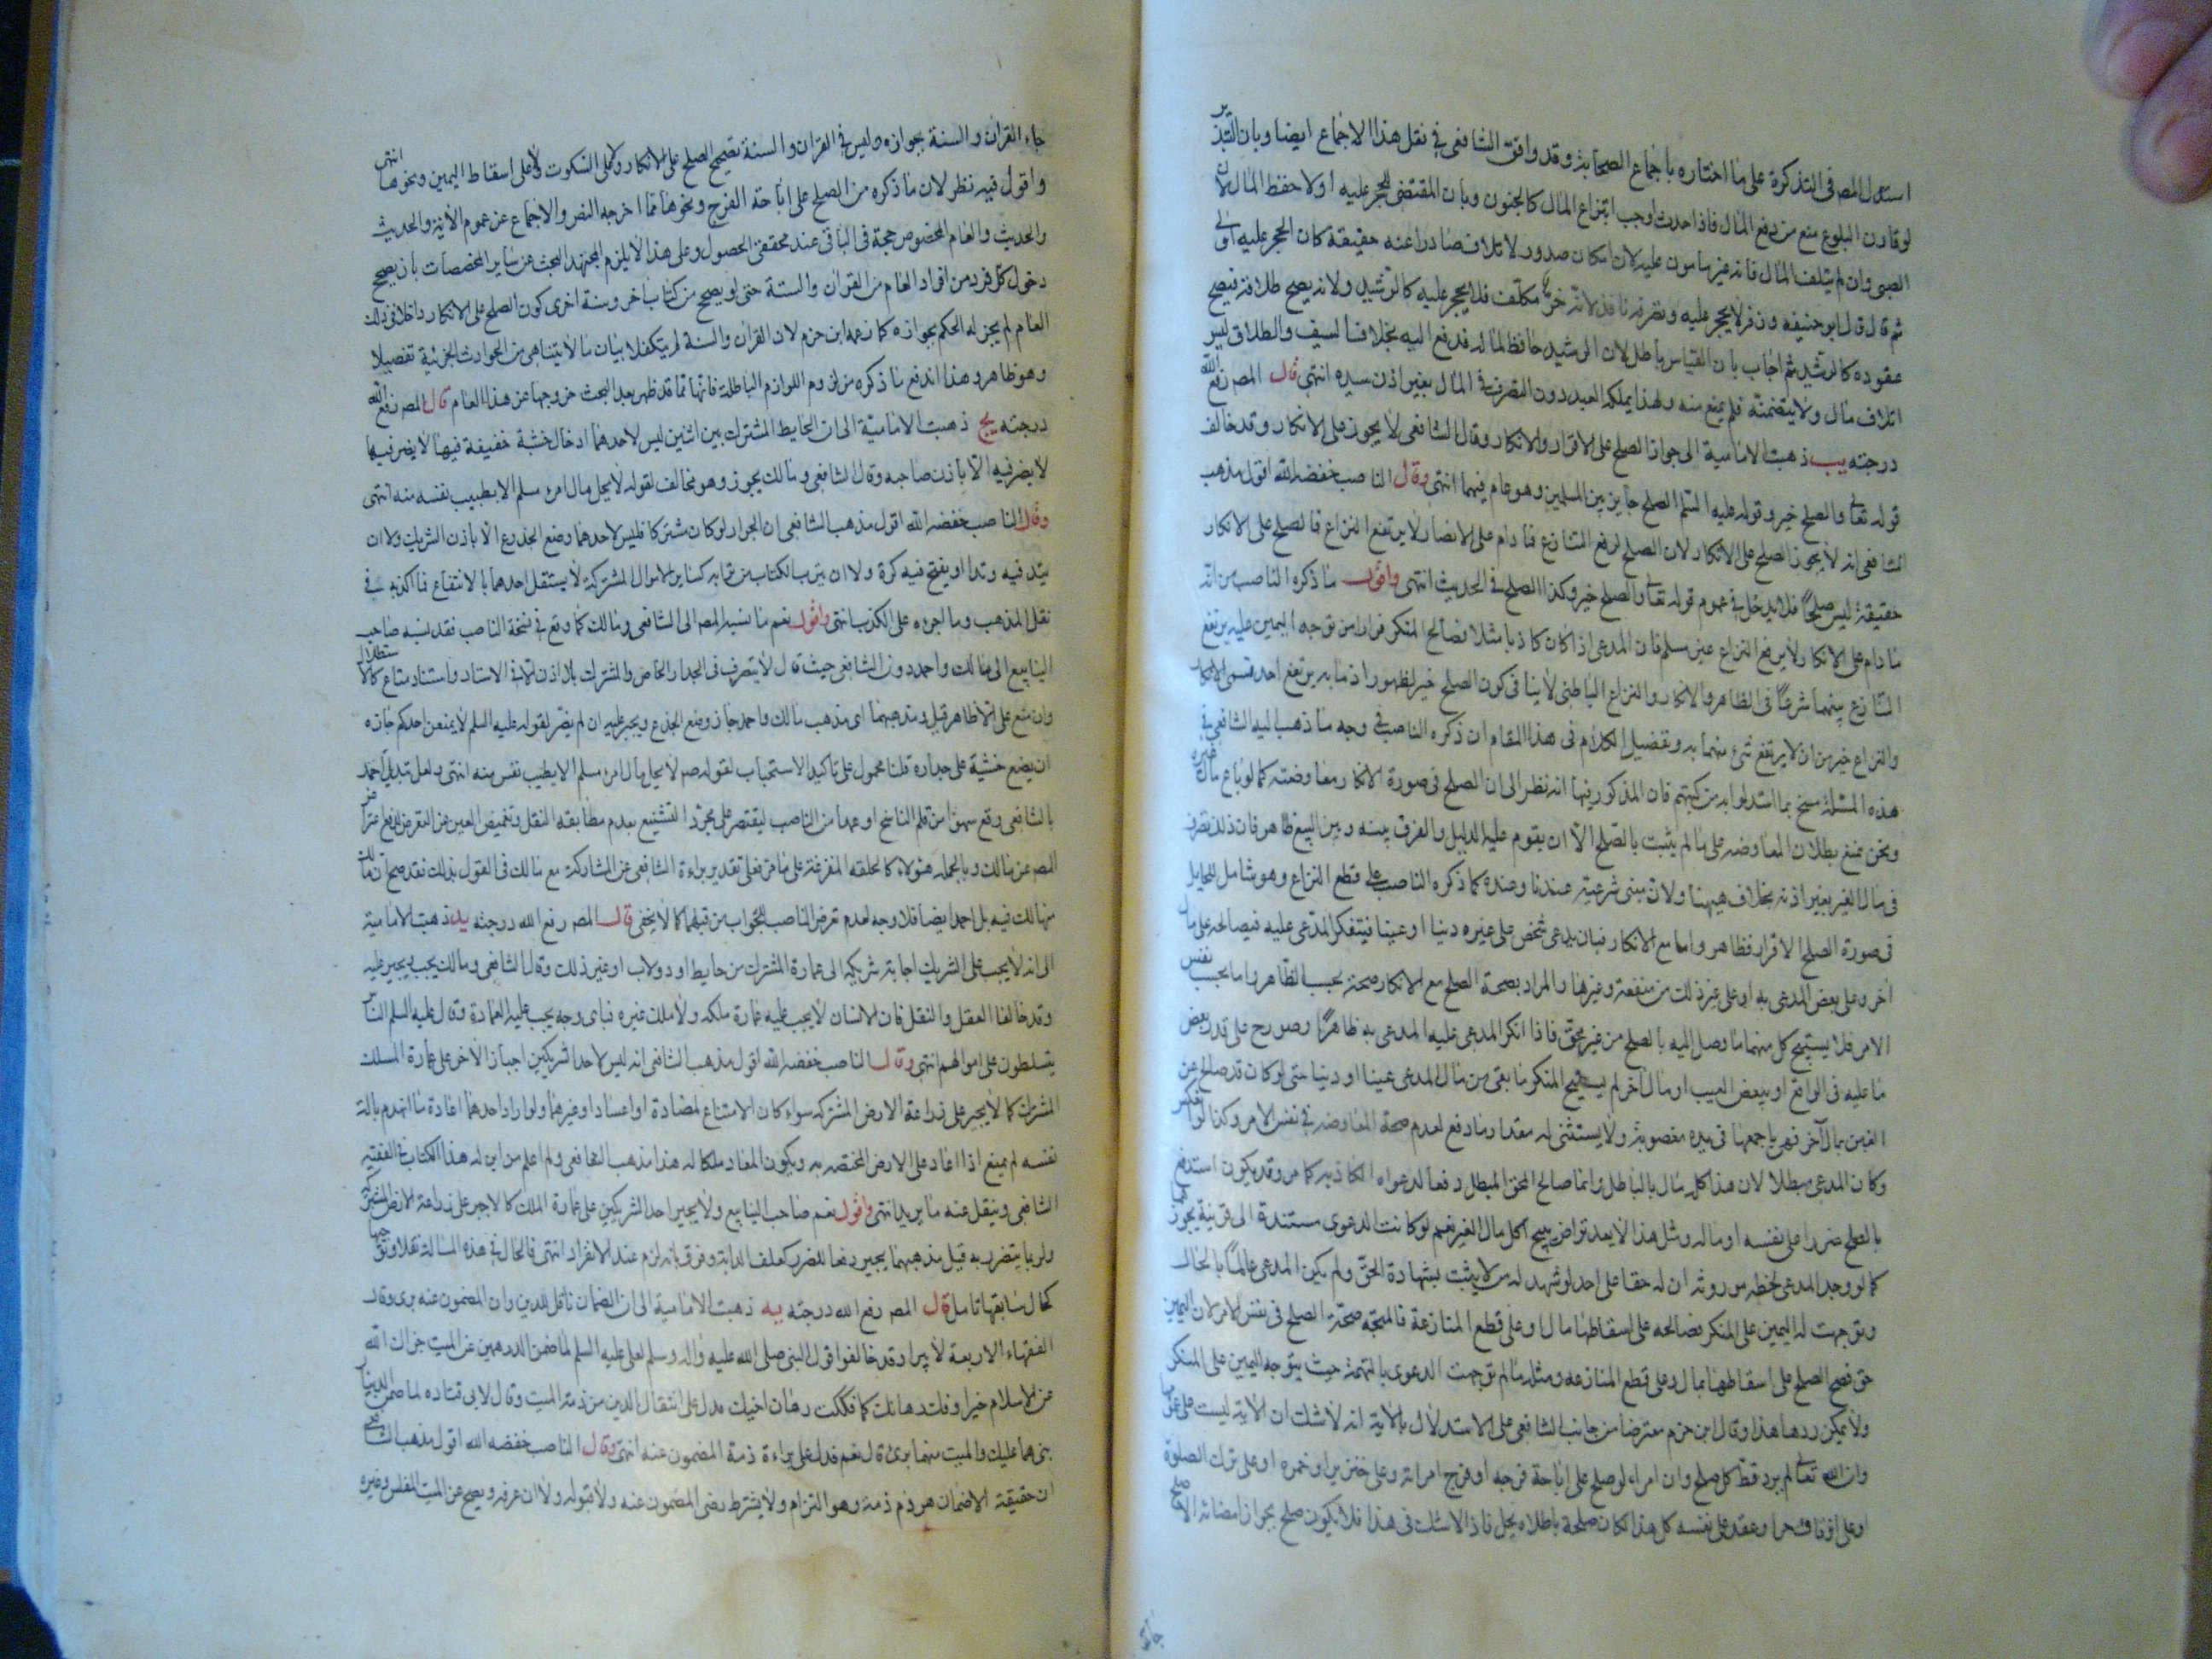 استدل المص في التذكرة على ما اختاره باجماع الصحابة وقد وافق الشافعي في نقل هذا الاجماع ايضا وبان التبذير
لو قارن البلوغ منع من دفع المال فاذا حدث اوجب انتزاع المال كالجنون وبان المقتضى للحجر عليه اولا حفظ المال لان
الصبى وان لم يتلف المال فانه غير مامون عليه لان امكان صدور الاتلاف صادرا عنه حقيقة كان الحجر عليه اولى
ثم قال قال ابو حنيفه وزفر لا يحجر عليه وتصرفه نافذ لانه حر مكلف فلا يحجر عليه كالرشيد ولانه يصح طلاقه فيصح
عقوده كالرشيد ثم اجاب بان القياس باطل لان الرشيد حافظ لماله فدفع اليه بخلاف السفيه والطلاق ليس
اتلاف مال ولا يتضمنه فلم يمنع منه ولهذا يملكه العبد دون التصرف في المال بغير اذن سيده انتهى قال المص رفع الله
درجته يب ذهبت الامامية الى جواز الصلح على الاقرار والانكار وقال الشافعي لا يجوز على الانكار وقد خالف
قوله تعالى والصلح خير وقوله عليه السلم الصلح جايز بين المسلمين وهو عام فيهما انتهى وقال الناصب خفضه الله اقول مذهب
الشافعي انه لا يجوز الصلح على الانكار لان الصلح لرفع التنازع فما دام على الانكار لا يرتفع النزاع فالصلح على الانكار
حقيقة ليس صلحًا فلا يدخل في عموم قوله تعالى والصلح خير وكذا الصلح في الحديث انتهى واقول ما ذكره الناصب من انه
ما دام على الانكار لا يرفع النزاع غير مسلم فان المدعى اذا كان كاذبا مثلا فصالح المنكر فرارا من توجه اليمين عليه يرتفع
التنازع بينهما شرعًا في الظاهر والانكار والنزاع الباطنى لا ينافى كون الصلح خير لظهور ان ما به يرتفع احد قسمى الانكار
والنزاع خير من ان لا يرتفع شئ منهما به وتفصيل الكلام في هذا المقام ان ذكره الناصب في وجه ما ذهب اليه الشافعي في
هذه المسئلة مسخ بما استدلوا به من كتبهم فان المذكور فيها انه نظر الى ان الصلح في صورة الانكار معاوضته كما لو باع مال غيره
ونحن نمنع بطلان المعاوضه على ما لم يثبت بالصلح الا ان يقوم عليه الدليل والفرق بينه وبين البيع ظاهر فان ذلك تصرف
في مال الغير بغير اذنه بخلاف هيهنا ولانه مبنى شرعيته عندنا وعنده كما ذكره الناصب على قطع النزاع وهو شامل للحايل
في صورة الصلح الاقرار فظاهر واما مع الانكار فبان يدعى شخص على غيره دينا او عينا فيتفكر المدعى عليه فيصالحه على مال
اخر وعلى بعض المدعى به او على غير ذلك من منفعة وغيرها والمراد بصحة الصلح مع الانكار صحته بحسب الظاهر واما بحسب نفس
الامر فلا يستبيح كل منهما ما وصل اليه بالصلح من غير محق فاذا انكر المدعى عليه المدعى به ظاهرًا وصورح على قدر بعض
ما عليه في الواقع او ببعض العيب او مال آخر لم يستبح المنكر ما بقى من مال المدعى عينا او دينا حتى لو كان قد صالح عن
العين بمال آخر فهى باجمعها في يده مغصوبة ولا يستثنى له مقدار ما دفع لعدم صحة المعاوضه في نفس الامر وكذا لو انعكس
وكان المدعى مبطلا لان هذا كله مال بالباطل وانما صالح المحق المبطل دفعا لدعواه الكاذبه كما مر وقد يكون استدفع
بالصلح ضررا على نفسه او ماله ومثل هذا لا يعد تراض يبيح اكل مال الغير نعم لو كانت الدعوى مستندة الى قرينة يجوز
كما لو وجد المدعى بخط مورثه ان له حقا على احد او شهد له من لا يثبت بشهادة الحق ولم يكن المدعى عالمًا بالحال
وتوجهت له اليمين على المنكر فصالحه على اسقاطها بمال او على قطع المنازعة فالمتجه صحة الصلح في نفس الامر لان اليمين
حق فصح الصلح على اسقاطها بمال وعلى قطع المنازعه ومثله ما لو توجهت الدعوى بالتهمة حيث يتوجه اليمين على المنكر
ولا يمكن ردها هذا وقال ابن حزم معترضا من جانب الشافعي على الاستدلال بالآية انه لا شك ان الآية ليست على عمومها
وان الله تعالى لم يرد قط كل صلح وان امراء لو صلح على اباحة فرجه او فرج امراته وعلى خنزير او خمره او على ترك الصلوة
او على ارقاق حر او عقد على نفسه كل هذا لكان صلحة باطلاه يحل فاذ لا شك في هذا فلا يكون صلح بجواز امضائه الا صلح
جاء القران والسنة بجوازه وليس في القران والسنة تصحيح الصلح على الانكار ولا على السكوت ولا على اسقاط اليمين ونحوها انتهى
واقول فيه نظر لان ما ذكره من الصلح على اباحة الفرج ونحوها مما اخرجه النص والاجماع عن عموم الآية والحديث
والحديث والعام المخصوص حجة في الباقى عند محققى الاصول وعلى هذا لا يلزم المجتهد البحث عن ساير المخصصات بان يصحح
دخول كل فرد من افراد العام من القران والسنة حتى لو يصحح من كتاب آخر وسنة اخرى كون الصلح على الانكار داخلا في ذلك
العام لم يجز له الحكم بجوازه كما زعمه ابن حزم لان القران والسنة لم يتكفلا ببيان ما لا يتناهى من الحوادث الجزئية تفصيلا
وهو ظاهر وهذا اندفع ما ذكره من لزوم اللوازم الباطلة فانها مما قد ظهر بعد البحث خروجها عن هذا العام قال المص رفع الله
درجته يج ذهبت الامامية الى ان الحايط المشترك بين اثنين ليس لاحدهما ادخال خشبة خفيفة فيها لا يضر فيها
لا يضر فيه الا باذن صاحبه وقال الشافعي ومالك يجوز وهو مخالف لقوله لا يحل مال امرئ مسلم الا بطيب نفسه منه انتهى
وقال الناصب خفضه الله اقول مذهب الشافعي ان الجدار لو كان مشتركا فليس لاحدهما وضع الجذوع الا باذن الشريك ولا ان
يتد فيه وتدا او يفتح فيه كرة ولا ان يترب الكتاب من ترابه كساير الاموال المشتركة لا يستقل احدهما بالانتفاع فما اكذبه في
نقل المذهب وما اجرءه على الكذب انتهى واقول نعم ما نسبه المص الى الشافعي ومالك كما وقع في نسخة الناصب فقد نسبه صاحب
الينابيع الى مالك واحمد دون الشافعي حيث قال لا يتصرف في الجدار الخاص والمشترك بلا اذن لا في الاستناد واسناد متاع كالاستظلال
وان منع على الاظاهر قيل ومذهبهما اى مذهب مالك واحمد جاز وضع الجذع ويجبر عليه ان لم يضر لقوله عليه السلم لا يمنعن احدكم جاره
ان يضع خشبة على جداره قلنا محمول على تاكيد الاستحباب لقوله صم لا يحل مال امرئ مسلم الا بطيب نفس منه انتهى ولعل تبديل احمد
بالشافعي وقع سهوا من قلم الناسخ او عمدا من الناصب ليقتصر على مجرد التشنيع بعدم مطابقه النقل وتغميض العين عن التعرض لدفع اعتراض
المص عن مالك وبالجمله هؤلاء كالحلقه المفرغة على ما مر فعلى تقدير براءة الشافعي عن المشاركة مع مالك في القول بذلك فقد صح ان مالك
منهالك فيه بل احمد ايضا فلا وجه لعدم تعرض الناصب للجواب من قبلهما كما لا يخفى قال المص رفع الله درجته يد ذهبت الامامية
الى انه لا يجب على الشريك اجابة شريكه الى عمارة المشترك من حايط او دولاب او غير ذلك وقال الشافعي ومالك يجب ويجبر عليه
وقد خالفا العقل والنقل فان الانسان لا يجب عليه عمارة ملكه ولا ملك غيره فباى وجه يجب عليه العمارة وقال عليه السلم الناس
يتسلطون على اموالهم انتهى وقال الناصب خفضه الله اقول مذهب الشافعي انه ليس لاحد الشريكين اجبار الآخر على عمارة المسلك
المشترك كما لا يجبر على زراعة الارض المشتركه سواء كان الامتناع لمضادة او اعسار او غيرهما ولو اراد احدهما اعادة ما انهدم بالة
نفسه لم يمنع اذا اعاد على الارض المختصه به ويكون المعاد ملكا له هذا مذهب الشافعي ولم اعلم من اين له هذا الكتاب في الفقيه
الشافعي وينقل عنه ما يريد انتهى واقول نعم صاحب الينابيع ولا يجبر احد الشريكين على عمارة الملك كالاجبر على زراعة الارض المشتركة
ولربما يتضرر به قيل مذهبهما يجبر دفعا للضرر كعلف الدابة وفرق بانه لزم عند الانفراد انتهى فالحال في هذه المسالة نقلا وتوجيها
كحال سابقها تامل قال المص رفع الله درجته يه ذهبت الامامية الى ان الضمان ناقل للدين وان المضمون عنه برئ وقال
الفقهاء الاربعة لا يبرا وقد خالفوا قول النبى صلى الله عليه واله وسلم لعلى عليه السلم لما ضمن الدرهمين عن الميت جزاك الله
عن الاسلام خيرا وفك رهانك كما فككت رهان اخيك فدل على انتقال الدين من ذمة الميت وقال لابى قتاده لما ضمن الدينارين
هما عليك والميت منهما برئ قال نعم فدل على براءة ذمة المضمون عنه انتهى وقال الناصب خفضه الله اقول مذهب الشافعي
ان حقيقة الضمان هو ذم ذمة وهو التزام ولا يشترط رضى المضمون عنه ولا قبوله ولا ان عرفه ويصح عن الميت المفلس وغيره